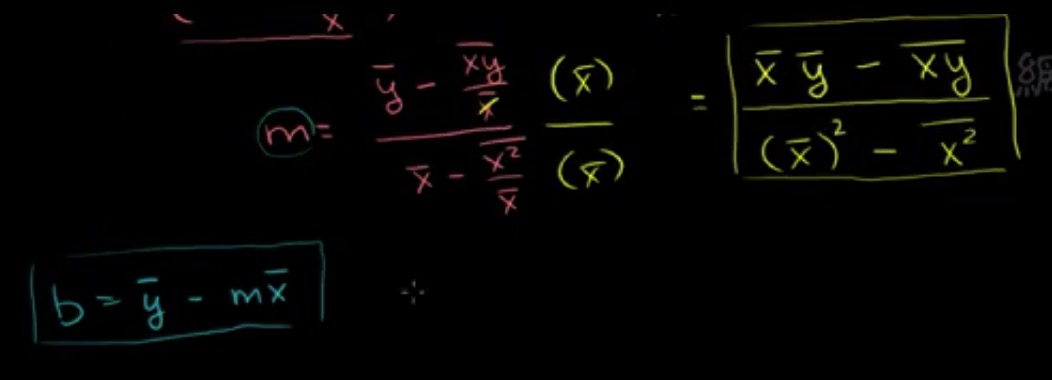 m = (ȳ - \overline{xy}/x̄)/(x̄ - \overline{x²}/x̄) (x̄)/(x̄) = (x̄ ȳ - \overline{xy})/((x̄)² - \overline{x²})
b = ȳ - mx̄